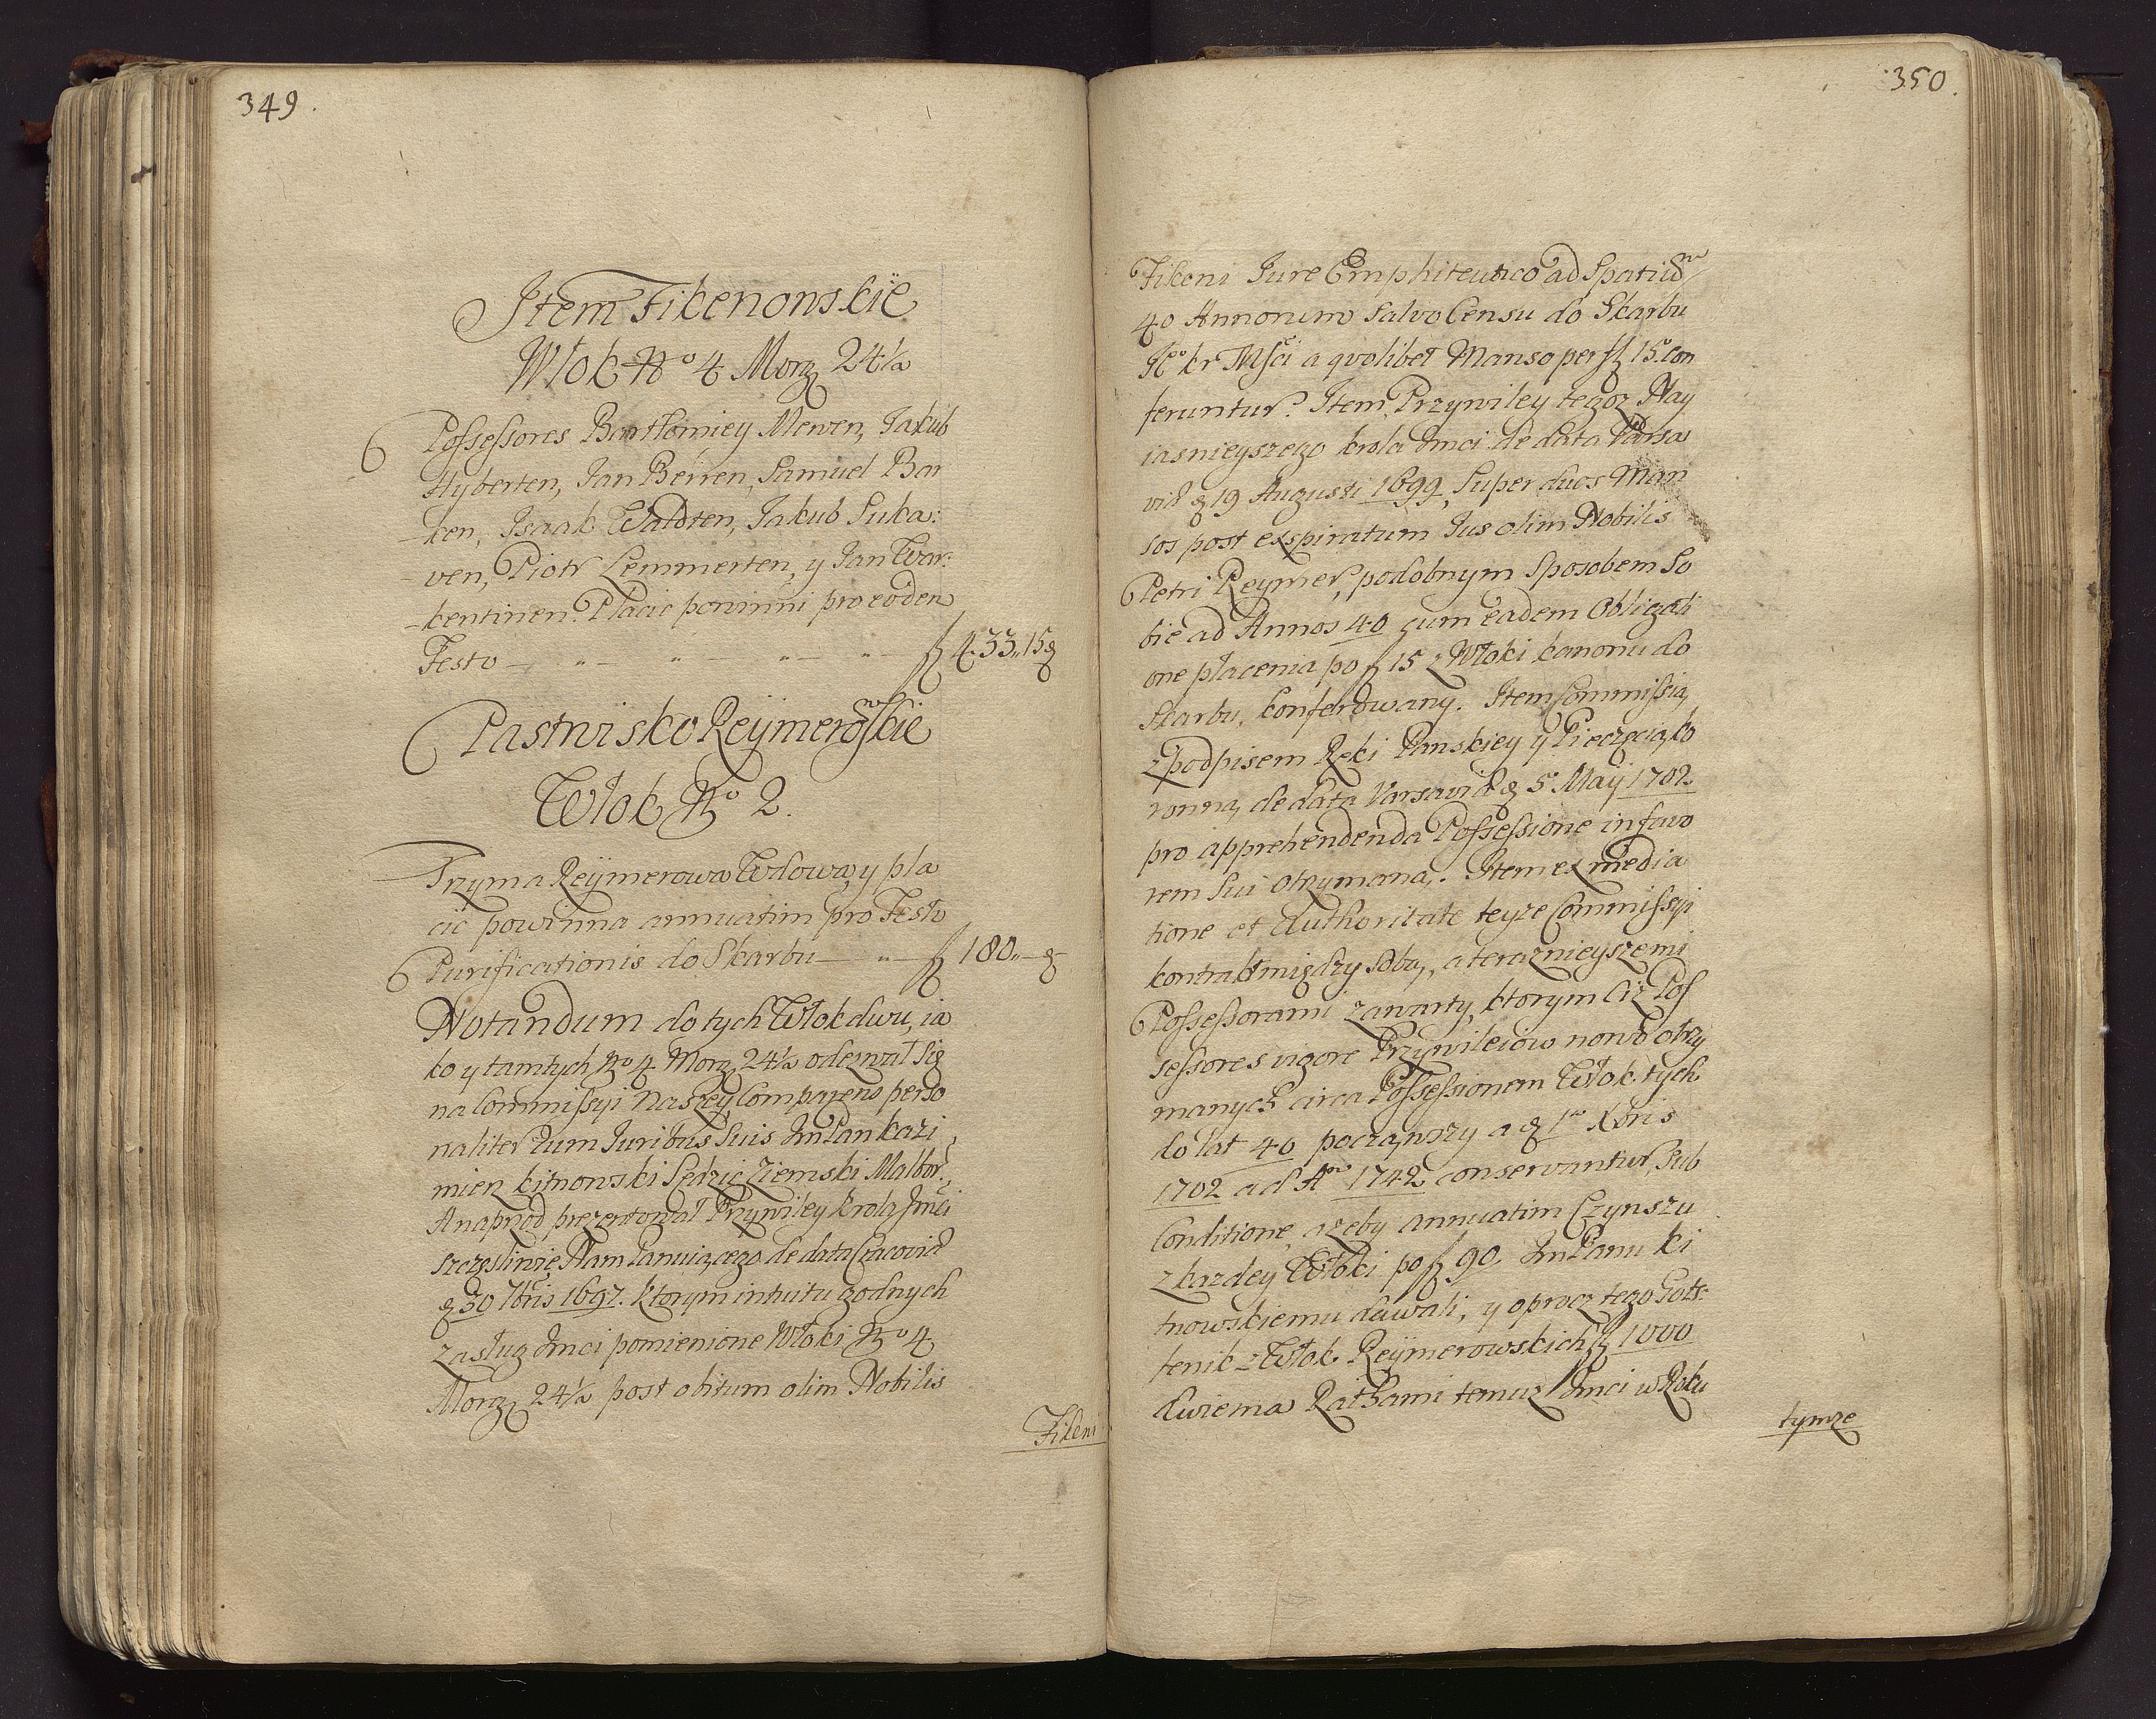 349.
Item Fikenonskie
Włok No 4 Morg 24½
Possessores Bartłomiey Mewen, Jakub
Hyberten, Jan Berren, Samuel Bar
-ken, Isaak Waldten, Jakub Suka:
-ven, Piotr Lemmerten, y Jan War:
-kentinen. Płacic powinni pro eodem
Festo — „ — „ — „ — „ — fl 433 „ 15 g
Pastwisko Reÿmerowskie
Włok No 2.
Trzyma Reÿmerowa Wdowa, y pła
cic powinna annuatim pro Festo
Purificationis do Skarbu — „ — fl 180 „ — g
Notandum do tych Włok dwu, ia
ko y tamtych No 4 Morg 24½ odezwał się
na Commissyi naszey Comparens perso
naliter cum Juribus suis Jm Pan Kazi
mierz Kitnowski Sędzic Ziemski Malbor:
A naprzod prezentował Przywiley Krola Jmci
szczęsliwie Nam Panuiącego de data Cracoviæ
d 30 7bris 1697. ktorym intuitu godnych
zasług Jmci pomienione Włoki No 4
Morg 24½ post obitum olim Nobilis
Fikeni
350.
Fikeni Jure Emphiteutico ad Spatium
40 Annorum salvo Censu do Skarbu
Jego Kr Mści a quolibet Manso per fl 15. con
feruntur. Item Przywiley tegoz Nay
iasnieyszego Krola Jmci de data Varsa
viæ d 19 Augusti 1699. Super duos Man
sos post exspiratum Jus olim Nobilis
Petri Reymer, podobnym sposobem So
bie ad Annos 40 cum eadem Obligati
one płacenia po fl 15 z Włoki kanonu do
Skarbu, konferowany. Item Commissią
z podpisem Ręki Panskiey y Pieczęcią ko
ronną, de data Varsaviæ d 5 Maÿ 1702.
pro apprehendenda Possessione in favo
rem sui otrzymaną. Item ex media
tione et Authoritate teyze Commissyi
kontrakt między sobą, a teraznieyszemi
Possessorami zawarty, ktorym ciż Pos
sessores vigore Przywileiow nowo otrzy
manych circa Possessionem Włok tych
do lat 40 począwszy a d 1ma Xbris
1702 ad Am 1742 conservantur, sub
Conditione, ażeby annuatim Czynszu
z kazdey Włoki po fl 90. Jm Panu Ki
tnowskiemu dawali, y oprocz tego Gots:
tenik z Włok Reÿmerowskich fl 1000
dwiema Rathami temuz Jmci w Roku
tymze